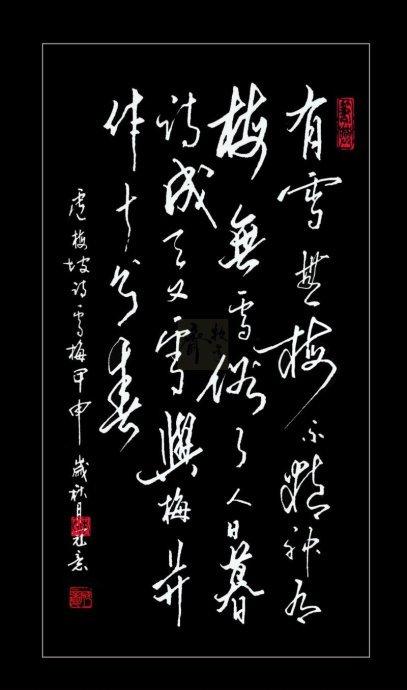 有雪無梅不精神有
梅無雪俗了人日暮
诗成天又雪與梅并
作十分春
盧梅坡诗雪梅甲申歲秋月